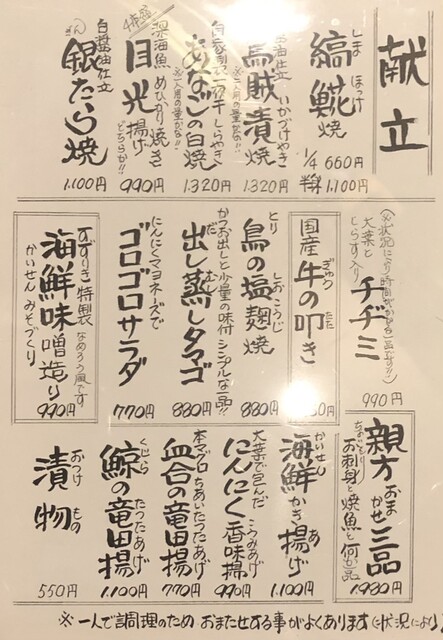 献立
しま ほっけ
縞𩸽焼
1/4 660円
半身 1,100円
醤油仕立 いかづけやき
烏賊漬焼
※一人用の量かな!!
1,320円
しらやき
あなごの白焼
※一人用の量かな!!
1,320円
4特盛
深海魚 めひかり焼き
目光揚げ
どちらか!!
990円
白醤油仕立
ぎん
銀たら焼
1,100円
(※状況により時間がかかる一品です!!)
大葉と
しらす入り
チヂミ
990円
ぎゅう たた
国産牛の叩き
とり しおこうじ
鳥の塩麹焼
880円
かつお出しと少量の味付 シンプルな一品!!
だ む
出し蒸しタマゴ
880円
にんにくマヨネーズで
ゴロゴロサラダ
770円
すずりき特製 なめろう風です
海鮮味噌造り
かいせん みそづくり
990円
親方おまかせ三品
ちょいもり
お刺身と焼魚と何か一品
1,980円
かいせん あ
海鮮かき揚げ
1,100円
大葉で包んだ こうみあげ
にんにく香味揚
990円
本マグロ ちあいたつたあげ
血合の竜田揚
770円
くじら たつたあげ
鯨の竜田揚
1,100円
おつけ もの
漬物
550円
※一人で調理のため おまたせする事がよくあります(状況により)